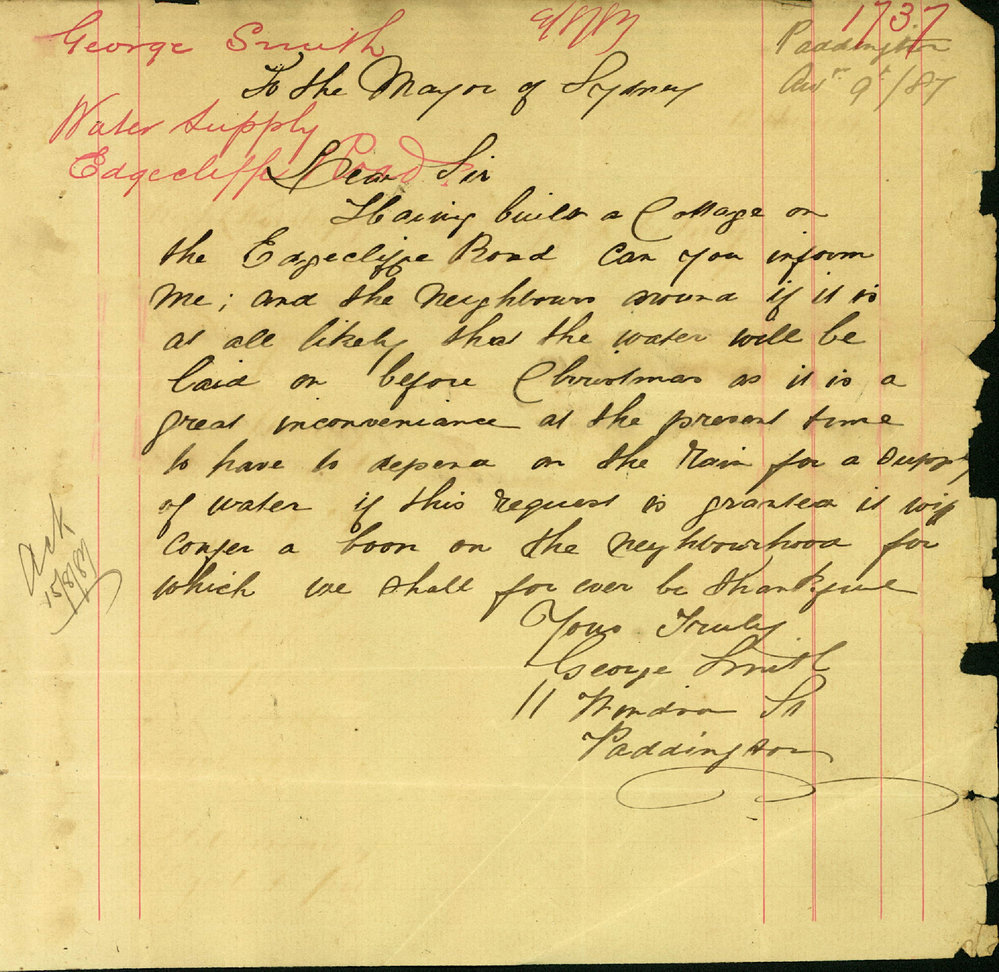 George Smith
9/8/87
1737
Paddington
Aus 9th/87
To the Mayor of Sydney
Water Supply
Edgecliffe Road
Dear Sir
Having built a Cottage on
the Edgecliffe Road Can you inform
me; and the neighbours around if it is
at all likely that the water will be
laid on before Christmas as it is a
great inconveniance at the present time
to have to depend on the Rain for a supply
of water if this request is granted it will
confer a boon on the neighbourhood for
which we shall for ever be thankful
Yours Truly
George Smith
11 Windsor St
Paddington
Ack
15/8/87